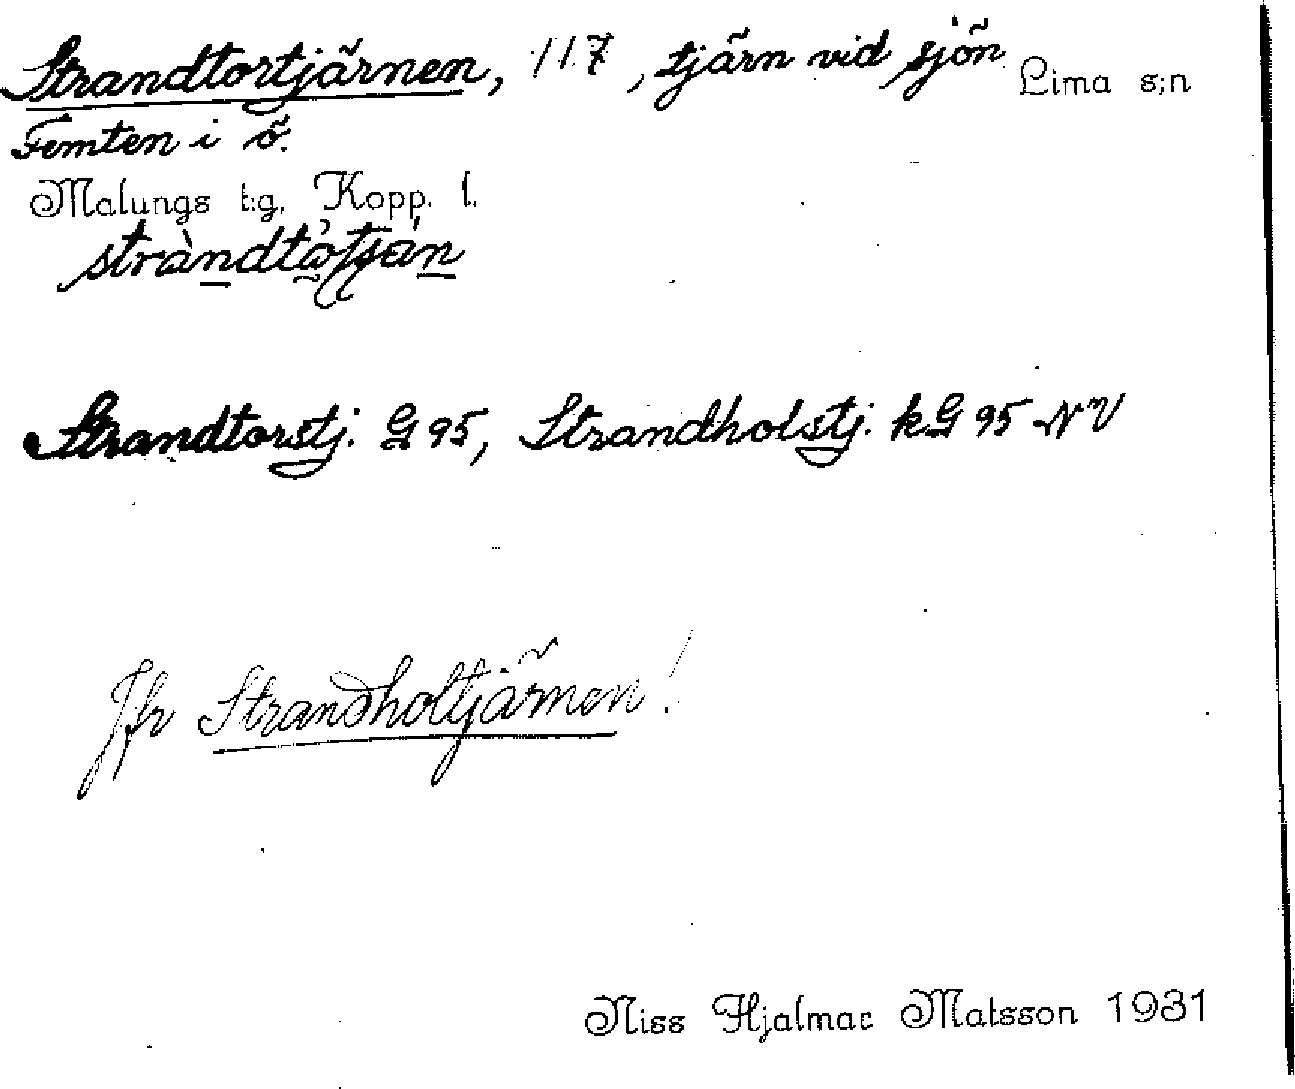 Strandtortjärnen, 117, tjärn vid sjön Lima s:n
Femten i ö.
Malungs t:g. Kopp. l.
Strandtorstj. G 95, Strandholstj. kG 95 NV
Jfr Strandholtjärnen!
Niss Hjalmar Matsson 1931